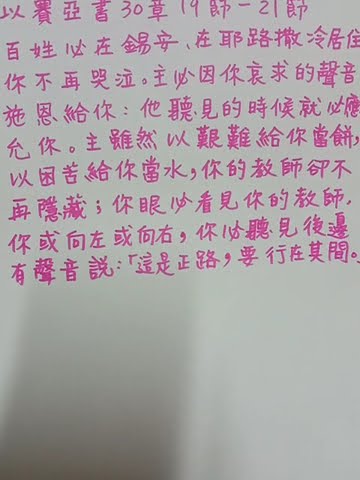 以賽亞書30章19節-21節
百姓必在錫安、在耶路撒冷居住
你不再哭泣。主必因你哀求的聲音
施恩給你:他聽見的時候就必應
允你。主雖然以艱難給你當餅,
以困苦給你當水,你的教師卻不
再隱藏;你眼必看見你的教師.
你或向左或向右,你必聽見後邊
有聲音説:「這是正路,要行在其間。